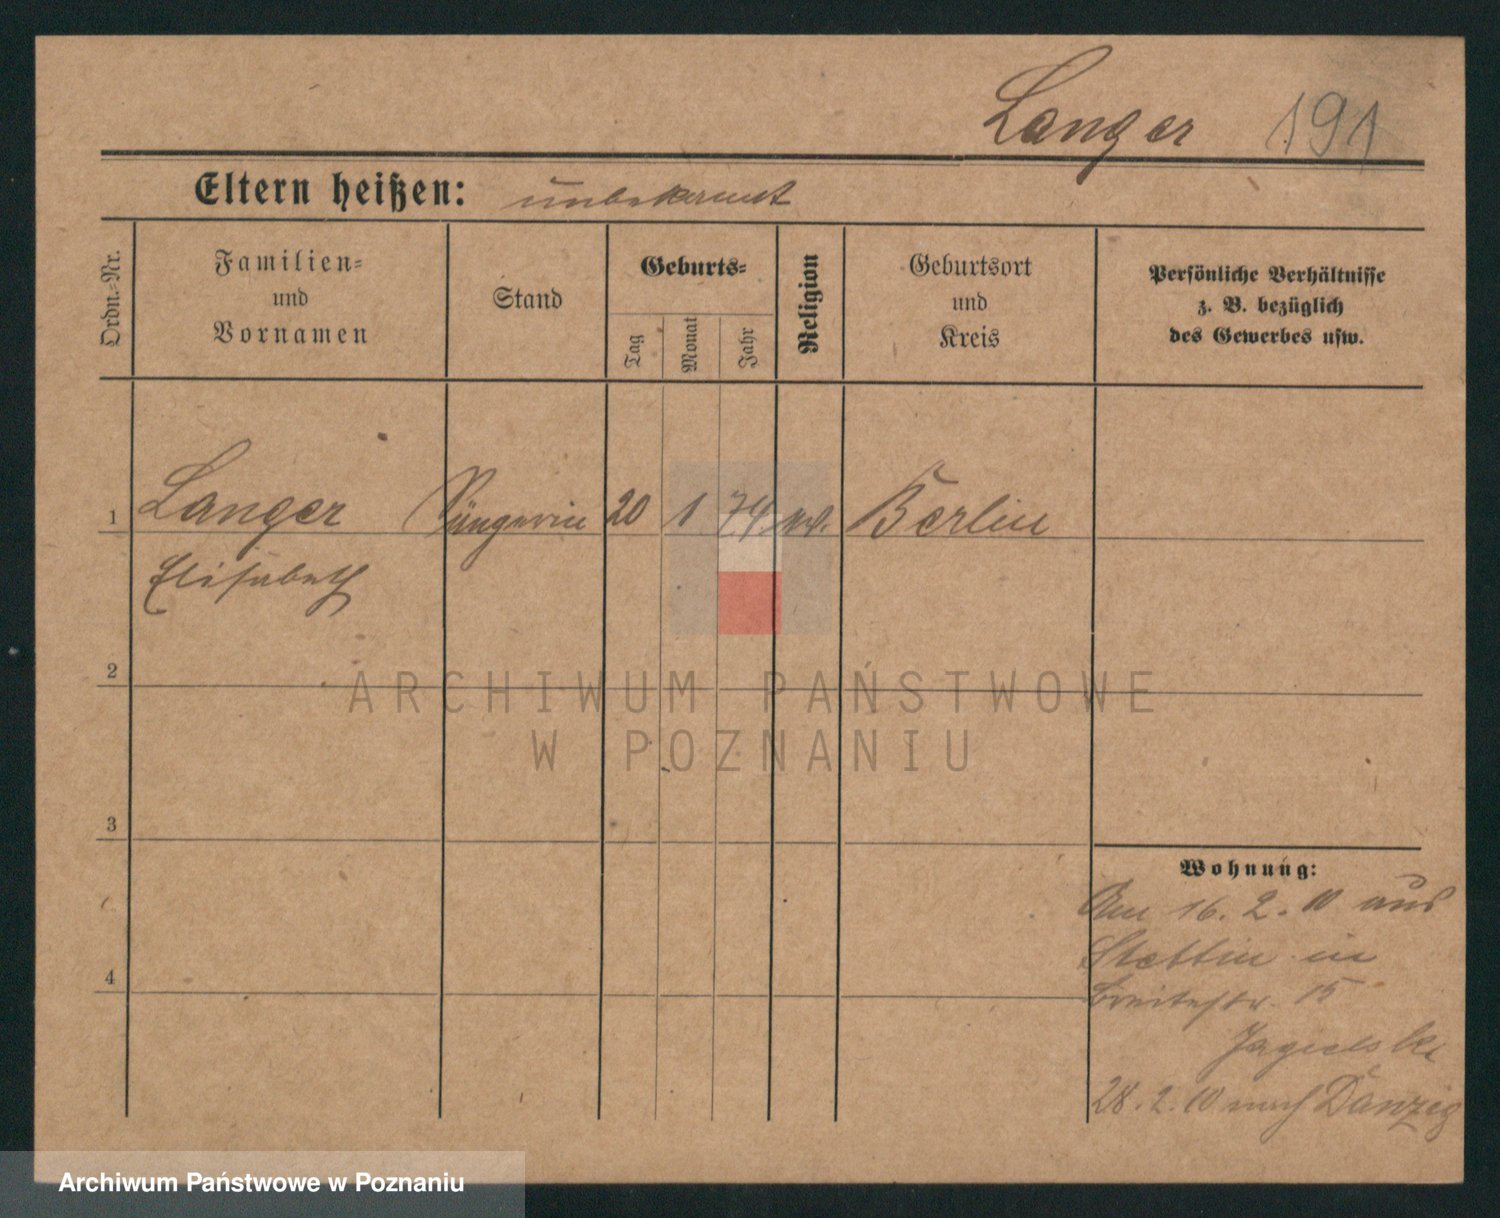 Langer 191
Eltern heißen: unbekannt
Ordn.-Nr.
Familien-
und
Vornamen
Stand
Geburts-
Tag
Monat
Jahr
Religion
Geburtsort
und
Kreis
Persönliche Verhältnisse
z. B. bezüglich
des Gewerbes usw.
1 Langer Sängerin 20 1 74 ev. Berlin
Elisabeth
2
ARCHIWUM PAŃSTWOWE
W POZNANIU
3
Wohnung:
Am 16. 2. 10 aus
Stettin in
4
Breitestr. 15
Jagielski
28. 2. 10 nach Danzig
Archiwum Państwowe w Poznaniu